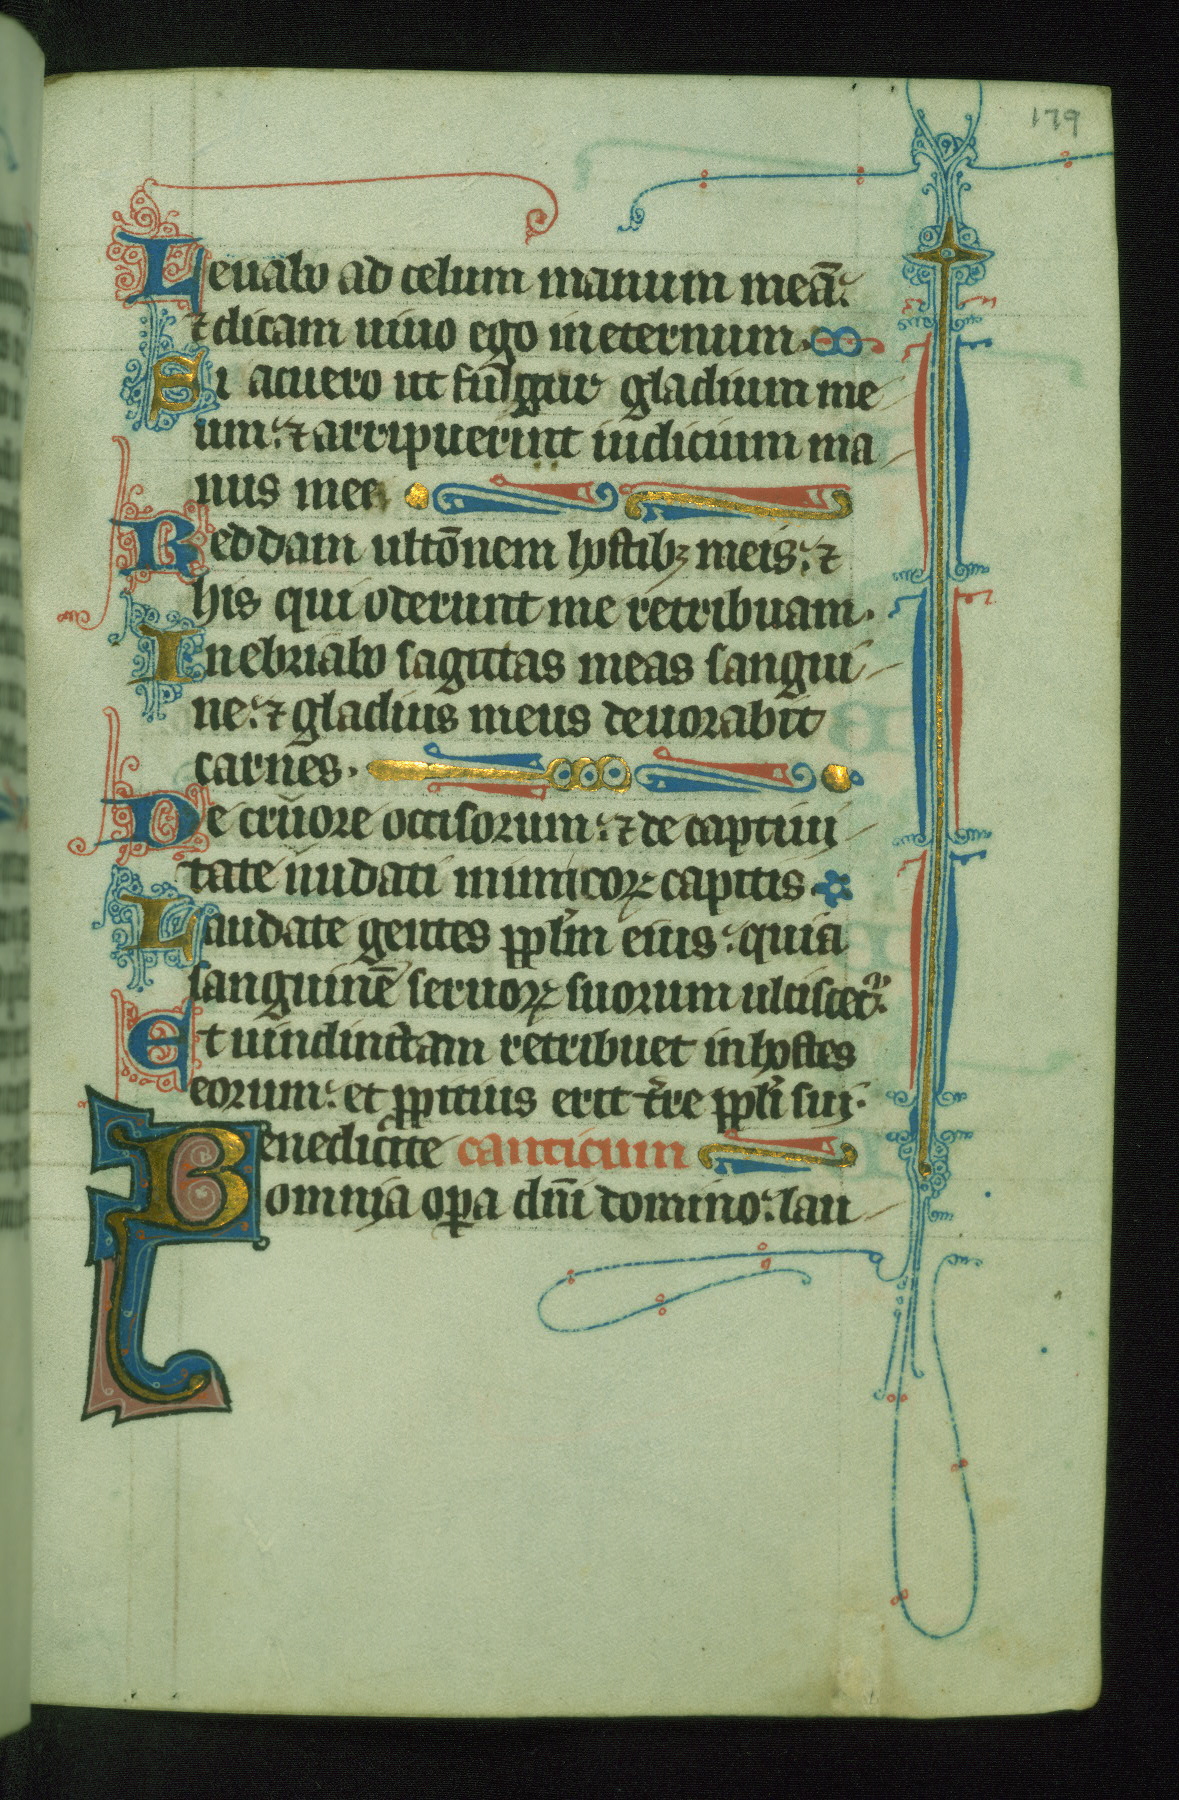 179
Leuabo ad celum manum meā:
⁊ dicam uiuo ego in eternum.
Si acuero ut fulgur gladium me
um: ⁊ arripuerint iudicium ma
nus mee
Reddam ultōnem hostibꝫ meis: ⁊
his qui oderunt me retribuam.
Inebriabo sagittas meas sangui
ne: ⁊ gladius meus deuorabit
carnes.
De cruore occisorum: ⁊ de captiui
tate nudati inimicoꝝ capitis
Laudate gentes pplm̄ eius: quia
sanguinē seruoꝝ suorum ulciscetᷣ:
Et uindinctam retribuet in hostes
eorum: et ꝓpitius erit t̄re ppl̄i sui.
Benedicite canticum
omnia oꝑa dn̄i domino: lau